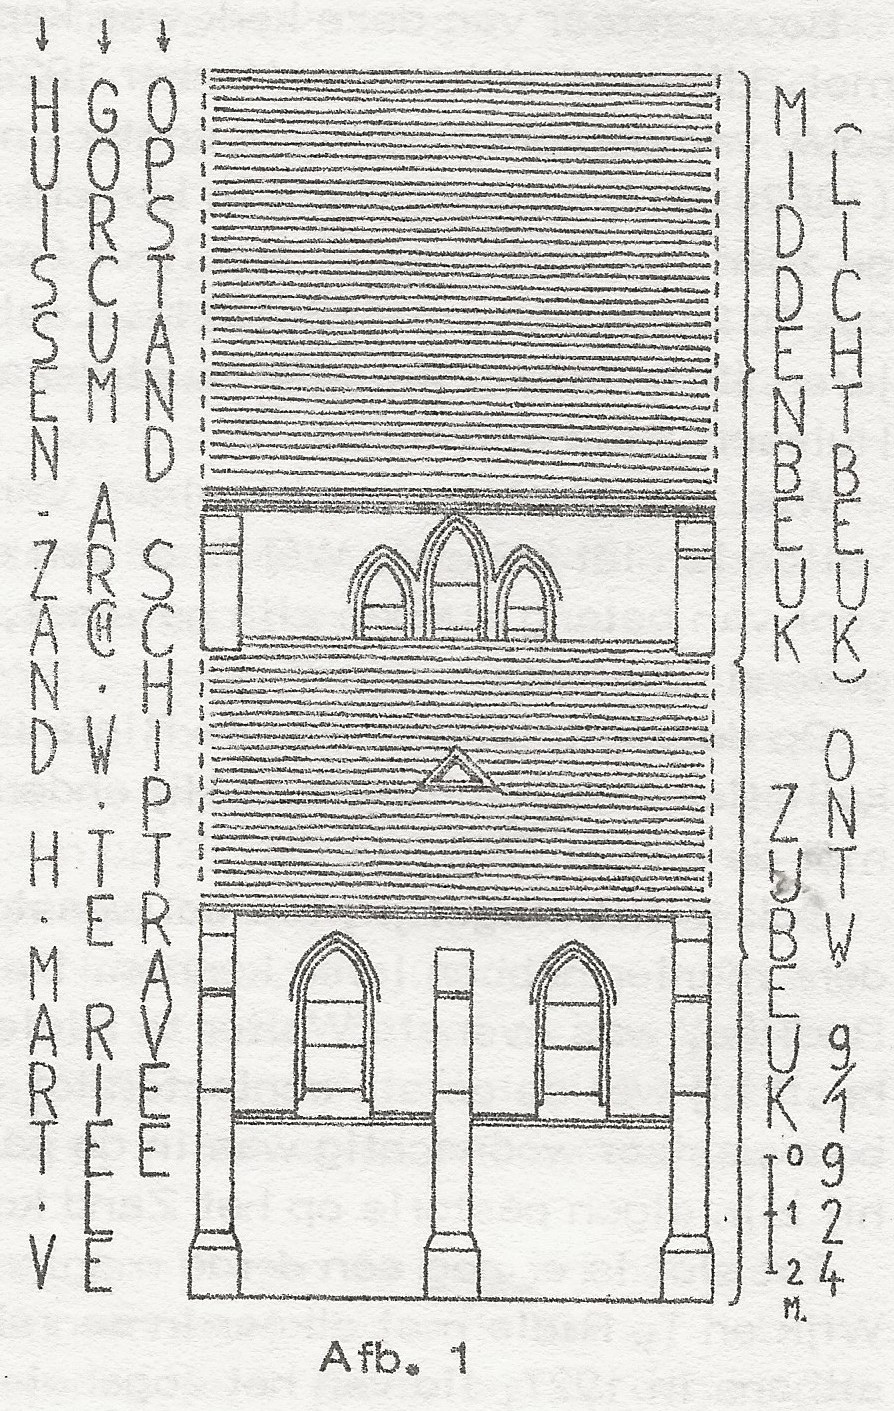 ↓ HUISSEN-ZAND H.MART.V
↓ GORCUM ARCH.W.TE RIELE
↓ OPSTAND SCHIPTRAVEE
MIDDENBEUK ZIJBEUK
(LICHTBEUK) ONTW. 9/1924
0
1
2 M.
Afb. 1